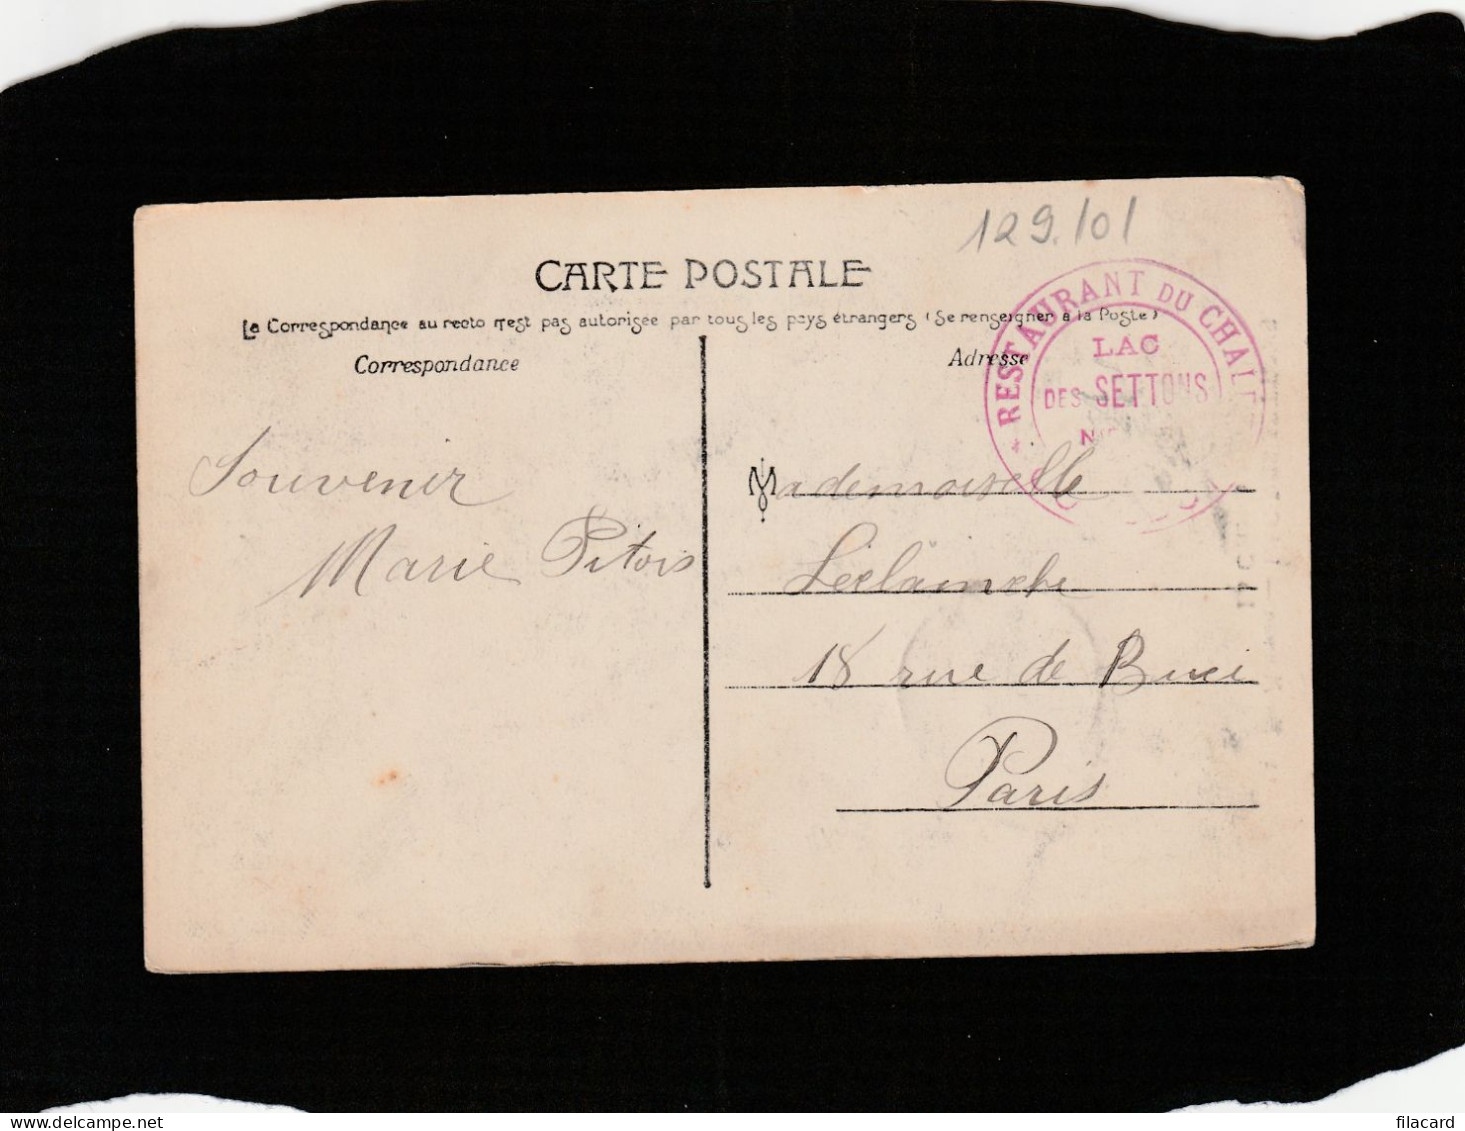 129.101
CARTE POSTALE
La Correspondance au recto n'est pas autorisée par tous les pays étrangers (Se renseigner à la Poste)
Correspondance
Adresse
RESTAURANT DU CHALE
LAC
DES SETTONS
Souvenir
Marie Pitois
Mademoiselle
18 rue de Buci
Paris
filacard